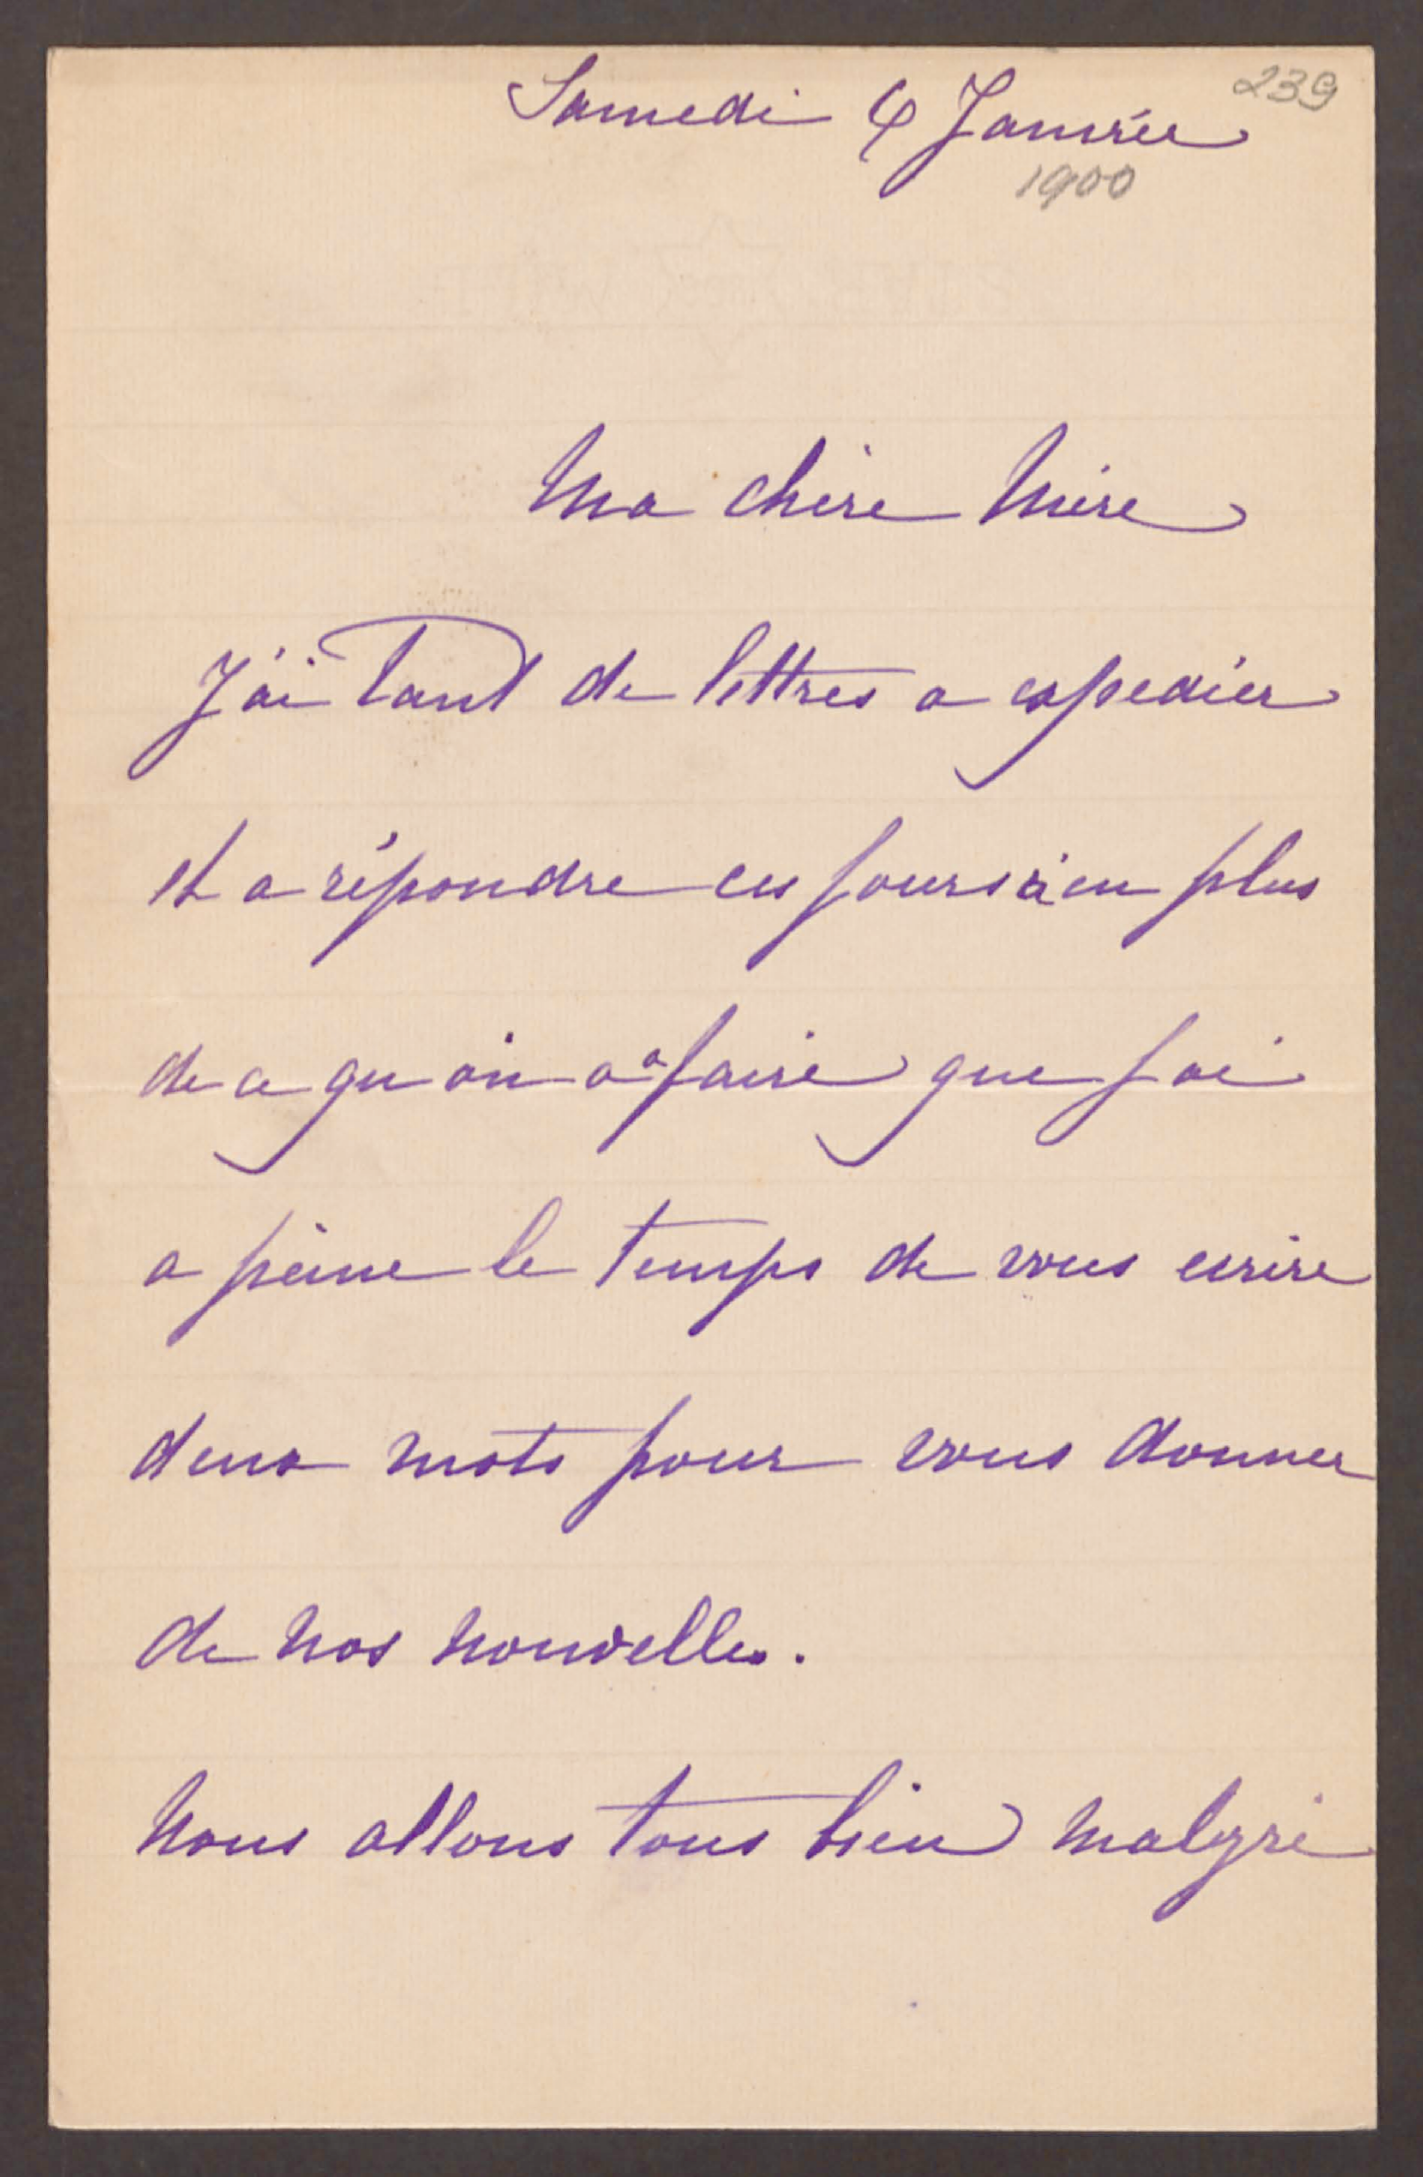 239
Samedi 4 Janvier
1900
Ma chère Mère
J'ai tant de lettres a expedier
et a répondre ces jours ci en plus
de ce qu on a a faire que j ai
a peine le temps de vous ecrire
deux mots pour vous donner
de nos nouvelles.
Nous allons tous bien malgré